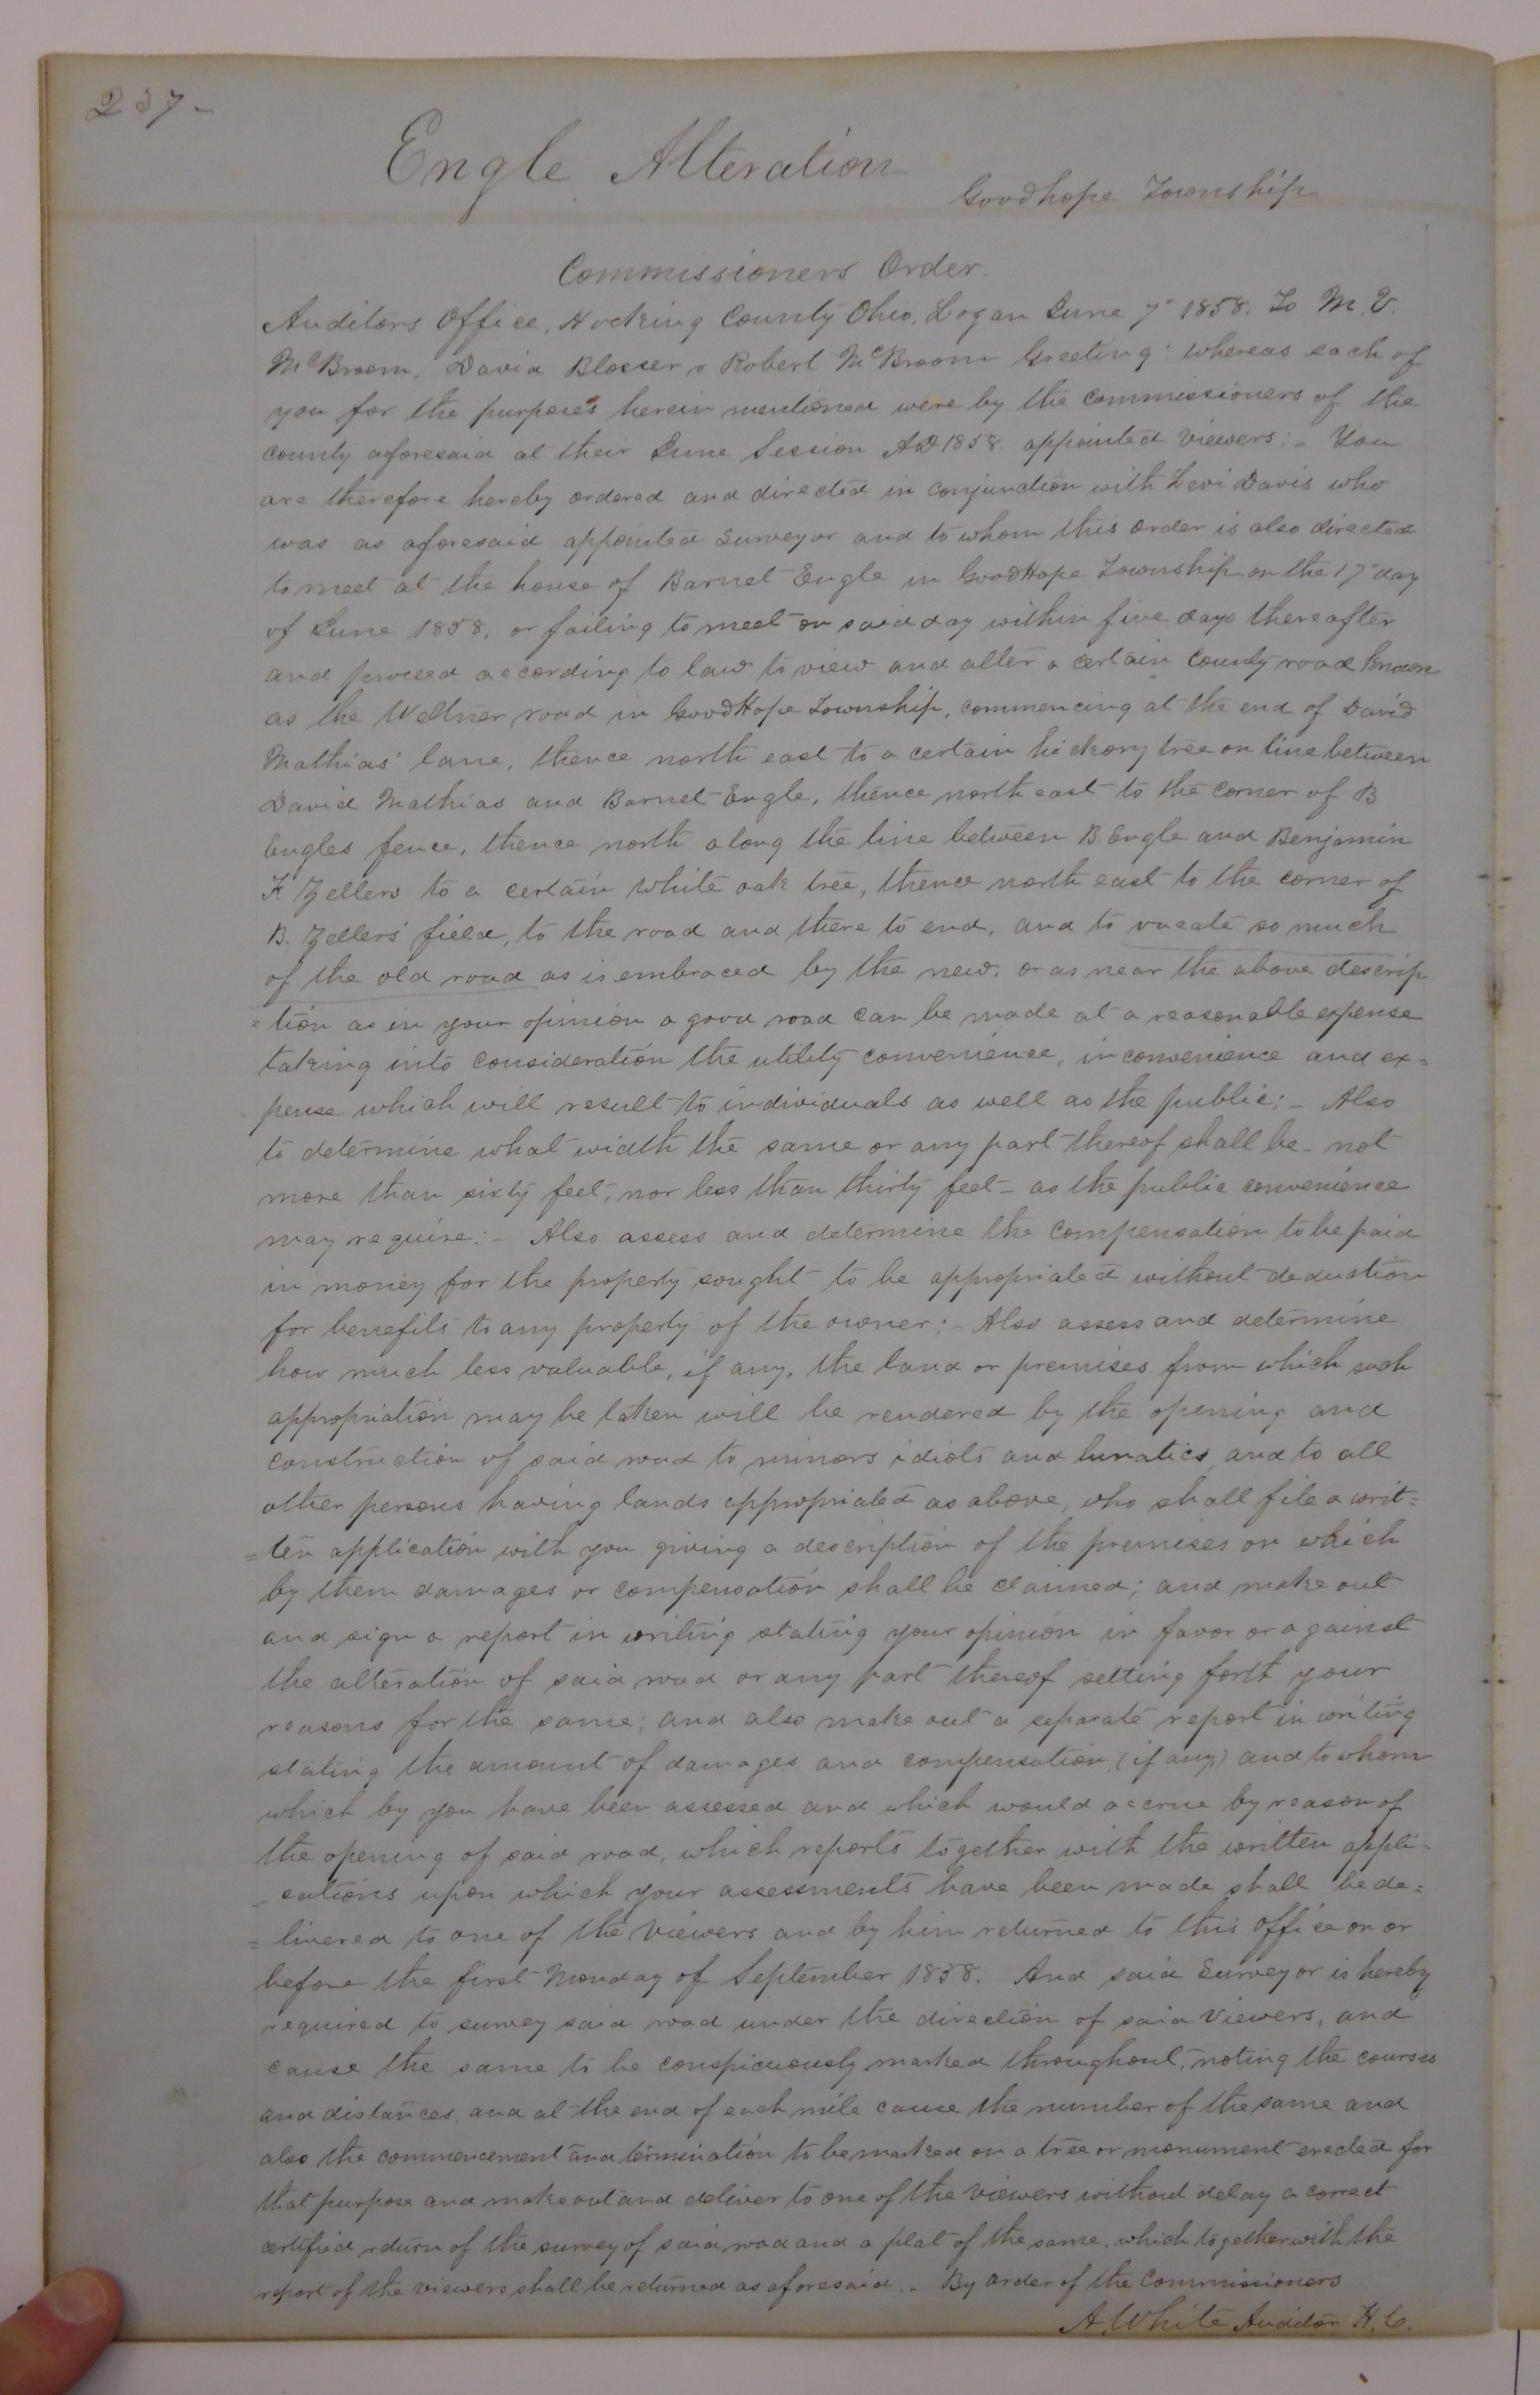 237-
Engle Alteration
Goodhope Township
Commissioners Order.
Auditors Office, Hocking County Ohio, Logan June 7" 1858. To M. V.
McBroom, David Blosser & Robert McBroom Greeting: whereas each of
you for the purposes herein mentioned were by the commissioners of the
county aforesaid at their June Session AD 1858. appointed viewers:- You
are therefore hereby ordered and directed in conjunction with Levi Davis who
was as aforesaid appointed surveyor and to whom this order is also directed
to meet at the house of Barnet Engle in GoodHope Township on the 17" day
of June 1858, or failing to meet on said day within five days thereafter
and proceed according to law to view and alter a certain County road known
as the Weltner road in GoodHope Township, commencing at the end of David
Mathias' lane, thence north east to a certain hickory tree on line between
David Mathias and Barnet Engle, thence north east to the corner of B
Engles fence, thence north along the line between B. Engle and Benjamin
F. Zellers to a certain white oak tree, thence north east to the corner of
B. Zellers' field, to the road and there to end, and to vacate so much
of the old road as is embraced by the new. or as near the above descrip
=tion as in your opinion a good road can be made at a reasonable expense
taking into consideration the utility convenience, inconvenience and ex=
pense which will result to individuals as well as the public:- Also
to determine what width the same or any part thereof shall be- not
more than sixty feet, nor less than thirty feet- as the public convenience
may require:- Also assess and determine the compensation to be paid
in money for the property sought to be appropriated without deduction
for benefits to any property of the owner:- Also assess and determine
how much less valuable, if any, the land or premises from which such
appropriation may be taken will be rendered by the opening and
construction of said road to minors idiots and lunatics, and to all
other persons having lands appropriated as above, who shall file a writ=
=ten application with you giving a description of the premises on which
by them damages or compensation shall be claimed; and make out
and sign a report in writing stating your opinion in favor or against
the alteration of said road or any part thereof setting forth your
reasons for the same; and also make out a separate report in writing
stating the amount of damages and compensation, (if any) and to whom
which by you have been assessed and which would accrue by reason of
the opening of said road, which reports together with the written appli-
-cations upon which your assessments have been made shall be de=
=livered to one of the viewers and by him returned to this office on or
before the first Monday of September 1858. And said Surveyor is hereby
required to survey said road under the direction of said Viewers, and
cause the same to be conspicuously marked throughout, noting the courses
and distances, and at the end of each mile cause the number of the same and
also the commencement and termination to be marked on a tree or monument erected for
that purpose and make out and deliver to one of the viewers without delay a correct
certified return of the survey of said road and a plat of the same, which together with the
report of the viewers shall be returned as aforesaid.- By order of the Commissioners
A. White Auditor H. C.